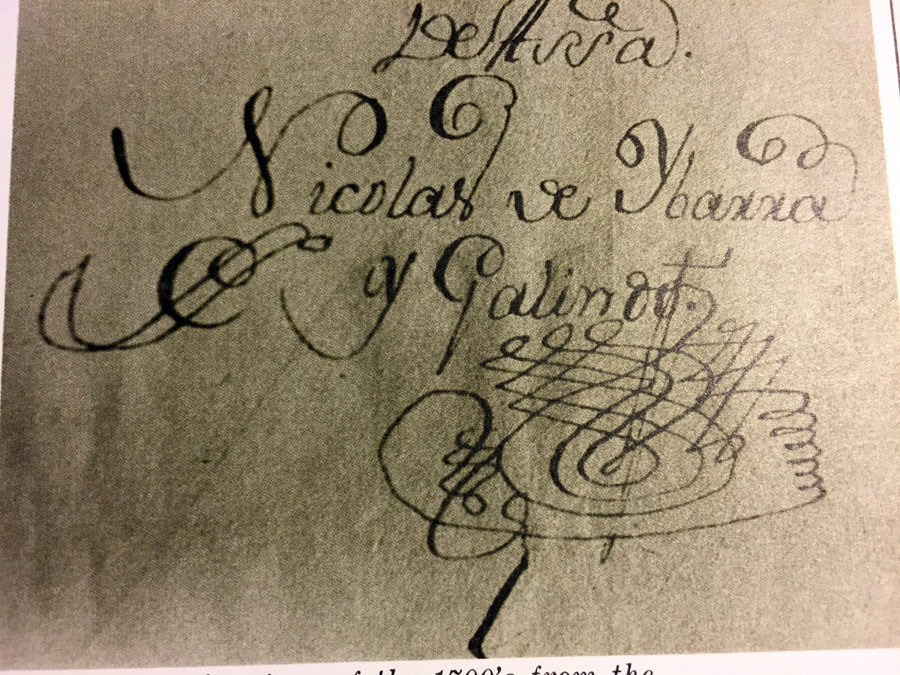 Nicolas de Ybarra
y Galindo.
of the 1700's from the